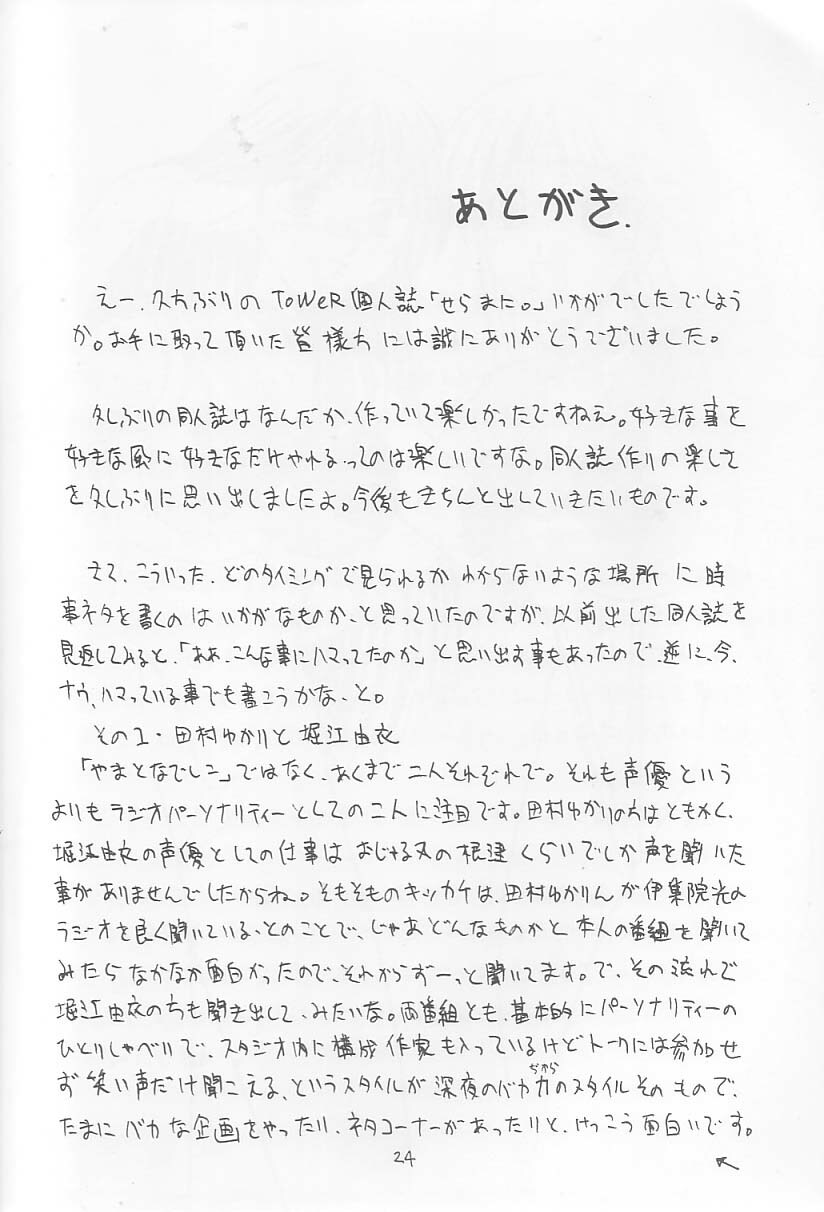 あとがき.
えー、久方ぶりの TOWeR 個人誌「せらまに。」いかがでしたでしょう
か。お手に取って頂いた皆様方には誠にありがとうございました。
久しぶりの同人誌はなんだか、作っていて楽しかったですねえ。好きな事を
好きな風に好きなだけやれる、ってのは楽しいですな。同人誌作りの楽しさ
を久しぶりに思い出しましたよ。今後もきちんと出していきたいものです。
さて、こういった、どのタイミングで見られるかわからないような場所に時
事ネタを書くのはいかがなものか、と思っていたのですが、以前出した同人誌を
見返してみると、「ああ、こんな事にハマってたのか」と思い出す事もあったので、逆に、今、
ナウ、ハマっている事でも書こうかな、と。
その1・田村ゆかりと堀江由衣
「やまとなでしこ」ではなく、あくまで二人それぞれで。それも声優という
よりもラジオパーソナリティーとしての二人に注目です。田村ゆかりの方はともかく、
堀江由衣の声優としての仕事はおじゃる丸の くらいでしか声を聞いた
事がありませんでしたからね。そもそものキッカケは、田村ゆかりんが伊集院光の
ラジオを良く聞いている、とのことで、じゃあどんなものかと本人の番組を聞いて
みたらなかなか面白かったので、それからずーっと聞いてます。で、その流れで
堀江由衣の方も聞き出して、みたいな。両番組とも、基本的にパーソナリティーの
ひとりしゃべりで、スタジオ内に構成作家も入っているけどトークには参加せ
ず笑い声だけ聞こえる、というスタイルが深夜のバカ力(ぢから)のスタイルそのもので、
たまにバカな企画をやったり、ネタコーナーがあったりと、けっこう面白いです。
24
↖